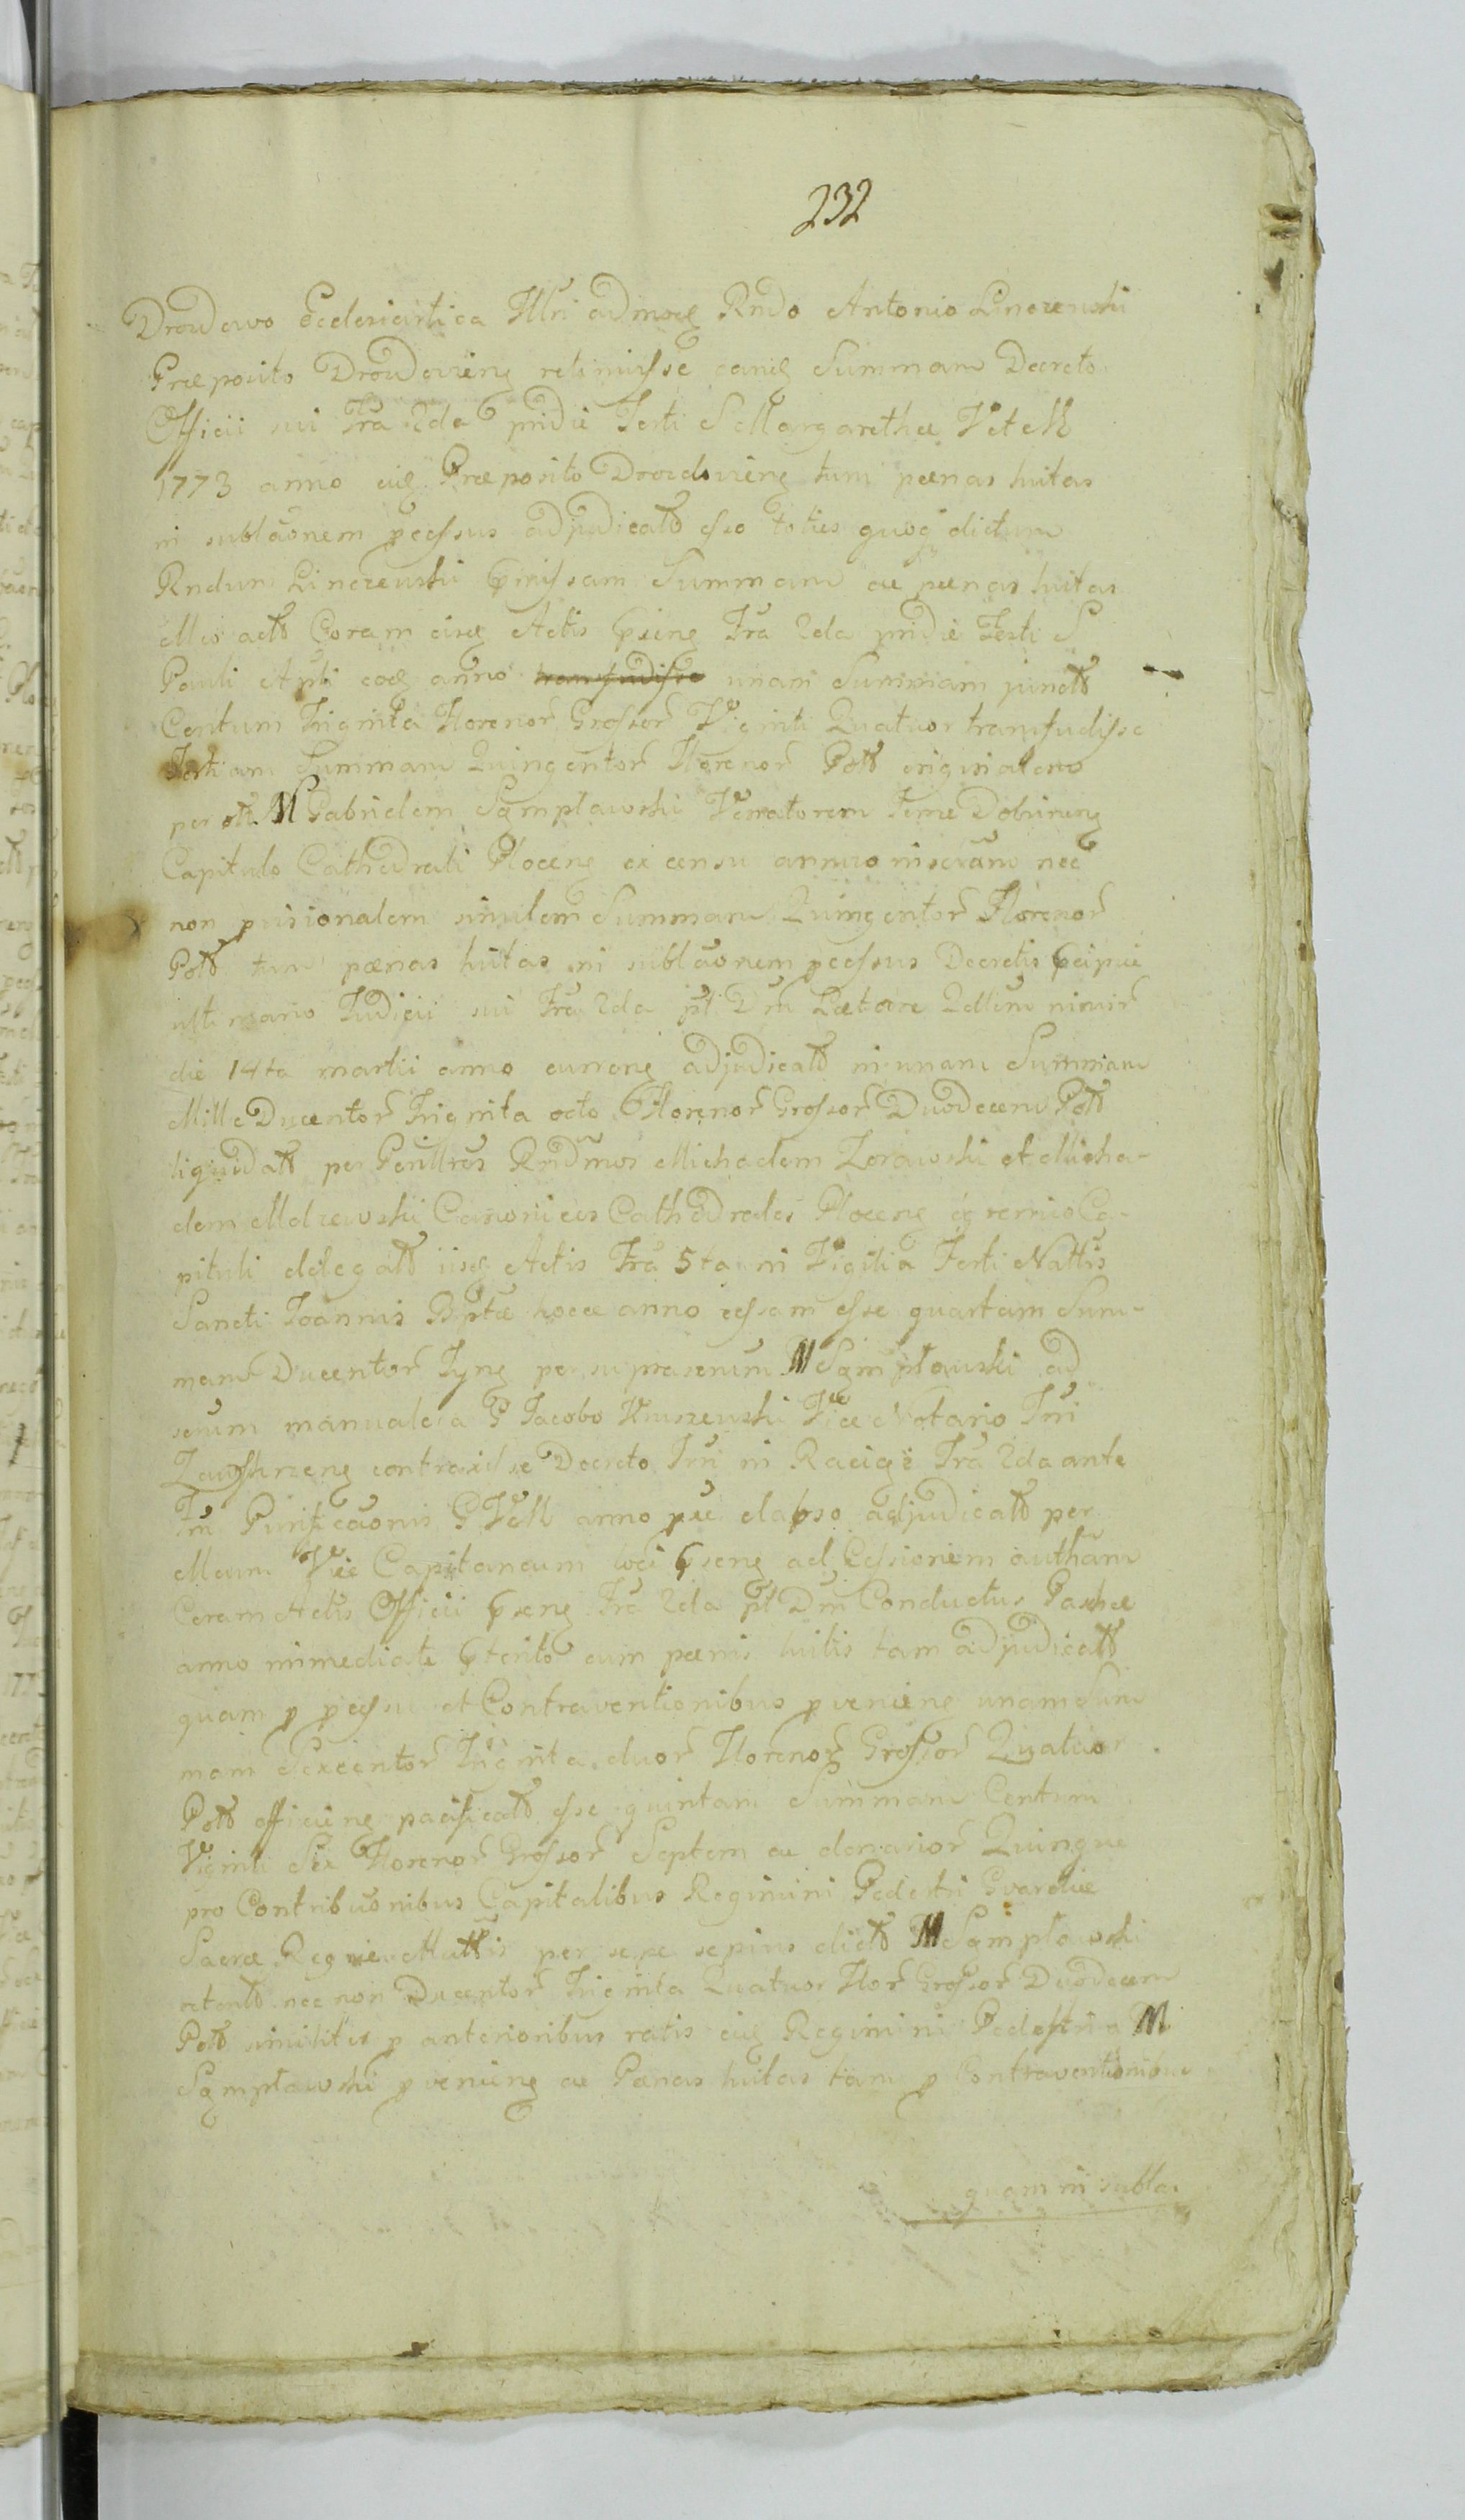 232
Drozdowo Ecclesiastica Illri admoq Rndo Antonio Linczewski
Præposito Drozdovieng retimuisse eamq Summam Decreto
Officii sui Fra 2da pridie Festi S Margarethæ V et M
1773 anno eiq Præposito Drozdovieng tum pænas luitas
in sublãonem pcessus adjudicatt esse toties quoq dictum
Rndum Linczewski missam Summam ac pænas luitas
Mco actt Coram eisq Actis pseng Fra 2da pridie Festi S
Pauli Apli eoq anno transfudisse unam Summam junctt
Centum Triginta Florenor Grossor Viginti Quatuor transfudisse
Tertiam Summam Quingentor Florenor Poll originalem
per olt M Gabrielem Sąmpławski Venatorem Terræ Dobrineng
Capitulo Cathedrali Ploceng ex censu annuo inscram nec
non provisionalem similem Summam Quingentor Florenor
Poll tum pænas luitas in sublãonem pcessus Decretis præcipue
ultimario Judicii sui Fra 2da pt Dm Lætare Qdllem nimir
die 14ta martii anno curreng adjudicatt in unam Summam
Mille Ducentor Triginta octo Florenor Grossor Duodecem Poll
liquidatt per Perillres Rndmos Michaelem Zorawski et Micha-
elem Mdzewski Canonicos Cathedrales Ploceng e gremio Ca-
pituli delegatt iisq Actis Fra 5ta in Vigilia Festi Nattis
Sancti Joannis Bptæ hocce anno cessam esse quartam Sum-
mam Ducentor Tyng per suprascrium M Sąmpławski ad
scrum manuale a G Jacobo Kruszewski Vice Notario Trri
Zawskrzeng contraxisse Decreto Trri in Raciąż Fra 2da ante
Fm Purificãonis B V M anno præ elapso adjudicatt per
Mcum Vice Capitaneum loci pseng ad Cessionem authãm
Coram Actis Officii pseng Fra 2da pt Dm Conductus Paschæ
anno immediate pterito cum pænis luitis tam adjudicatt
quam p pcessu et Contraventionibus pvenieng unam Sum
mam Sexcentor Triginta duor Florenor Grossor Quatuor
Poll efficieng pacificatt esse quintam Summam Centum
Viginti Sex Florenor Grossor Septem ac denarior Quinque
pro Contribuõnibus Capitalibus Regimini Pedestri Gvardiæ
Sacræ Regiæ Mattis per se sæpius dictt M Sąmpławski
retentt nec non Ducentor Triginta Quatuor Flor Grossor Duodecem
Poll similiter p anterioribus ratis eiq Regimini Pedestri a M
Sąmpławski pvenieng ac Pænas luitas tam p Contraventionibus
quam in subla